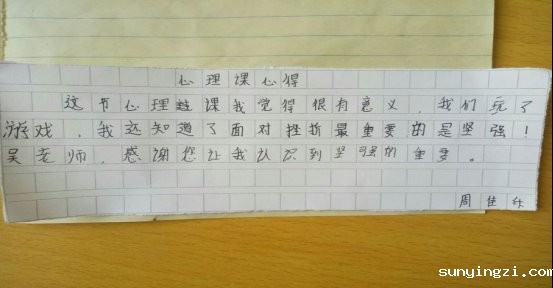 心理课心得
这节心理课我觉得很有意义，我们玩了
游戏，我还知道了面对挫折最重要的是坚强！
吴老师，感谢您让我认识到坚强的重要。
周佳
sunyingzi.com